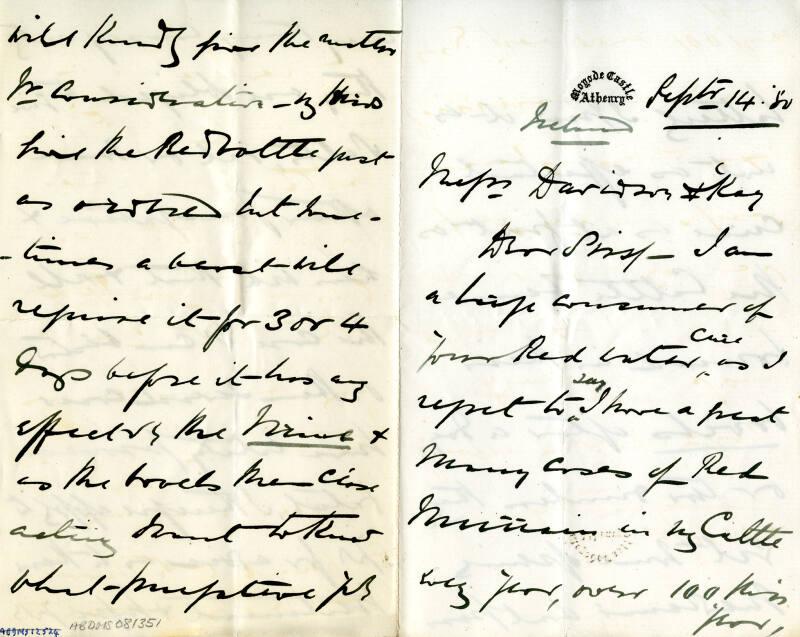 Moyode Castle
Athenry
Septr 14. 80
Ireland
Messrs Davidson & Kay
Dear Sirs – I am
a large consumer of
your Red water Cure, as I
regret to say I have a great
many cases of Red
Murrain in my Cattle
every year, over 100 this
year,
will kindly give the matter
yr consideration – my Herds
give the Red bottle just
as ordered but some-
-times a beast will
require it for 3 or 4
days before it has any
effect on the Urine &
as the bowels then cease
acting I want to know
what purgative
ABDMS12524
ABDMS081351